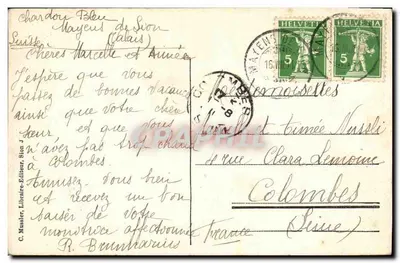 Chardon Bleu
Mayens de Sion
(Valais)
Suisse
Chères Marcelle et Aimée
J'espère que vous
passez de bonnes vacances
ainsi que votre chère
sœur et que vous
n'avez pas trop chaud
à Colombes.
Amusez-vous bien
et recevez un bon
baiser de votre
monitrice affectionnée
R.
Mesdemoiselles
et Aimée
4 rue Clara Lemoine
Colombes
(Seine)
France
HELVETIA
5
HELVETIA
5
MAYENS
C. Mussler, Libraire-Editeur, Sion